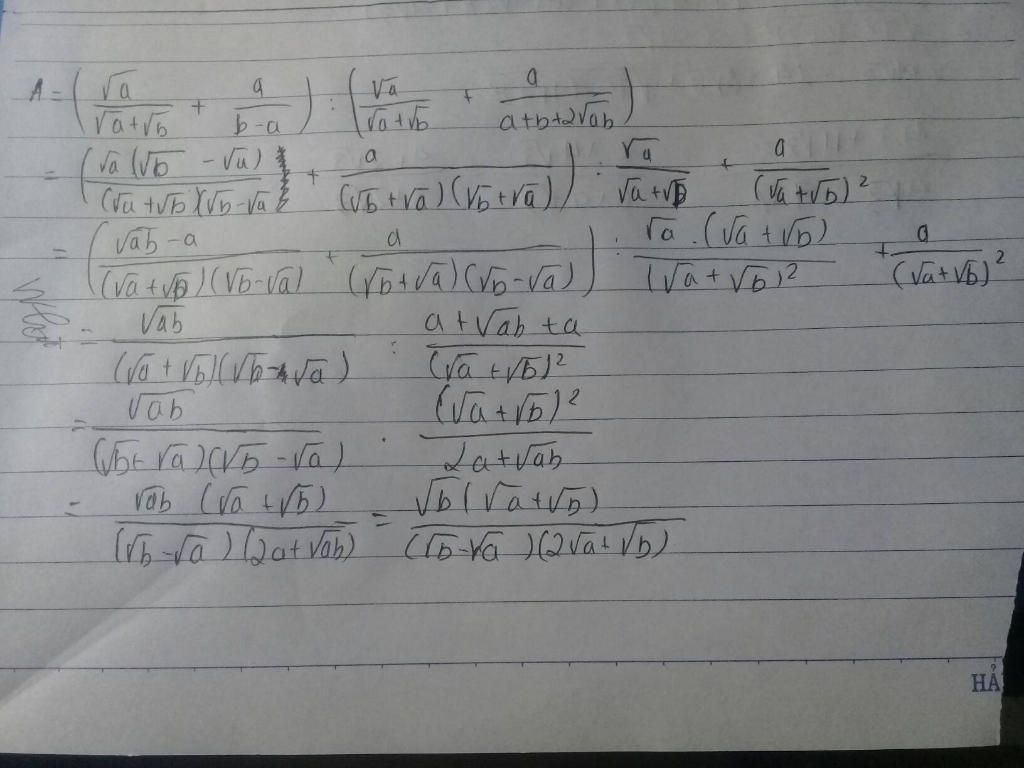 A = (√a/(√a+√b) + a/(b-a)) : (√a/(√a+√b) + a/(a+b+2√ab))
= (√a(√b - √a)/((√a+√b)(√b-√a) + a/((√b+√a)(√b+√a))) : √a/(√a+√b) + a/(√a+√b)²
= ((√ab - a)/((√a+√b)(√b-√a)) + a/((√b+√a)(√b-√a))) : √a.(√a+√b)/(√a+√b)² + a/(√a+√b)²
= √ab/((√a+√b)(√b-√a)) : (a+√ab+a)/(√a+√b)²
= √ab/((√b+√a)(√b-√a)) . (√a+√b)²/(2a+√ab)
= √ab(√a+√b)/((√b-√a)(2a+√ab)) = √b(√a+√b)/((√b-√a)(2√a+√b))
HẢ